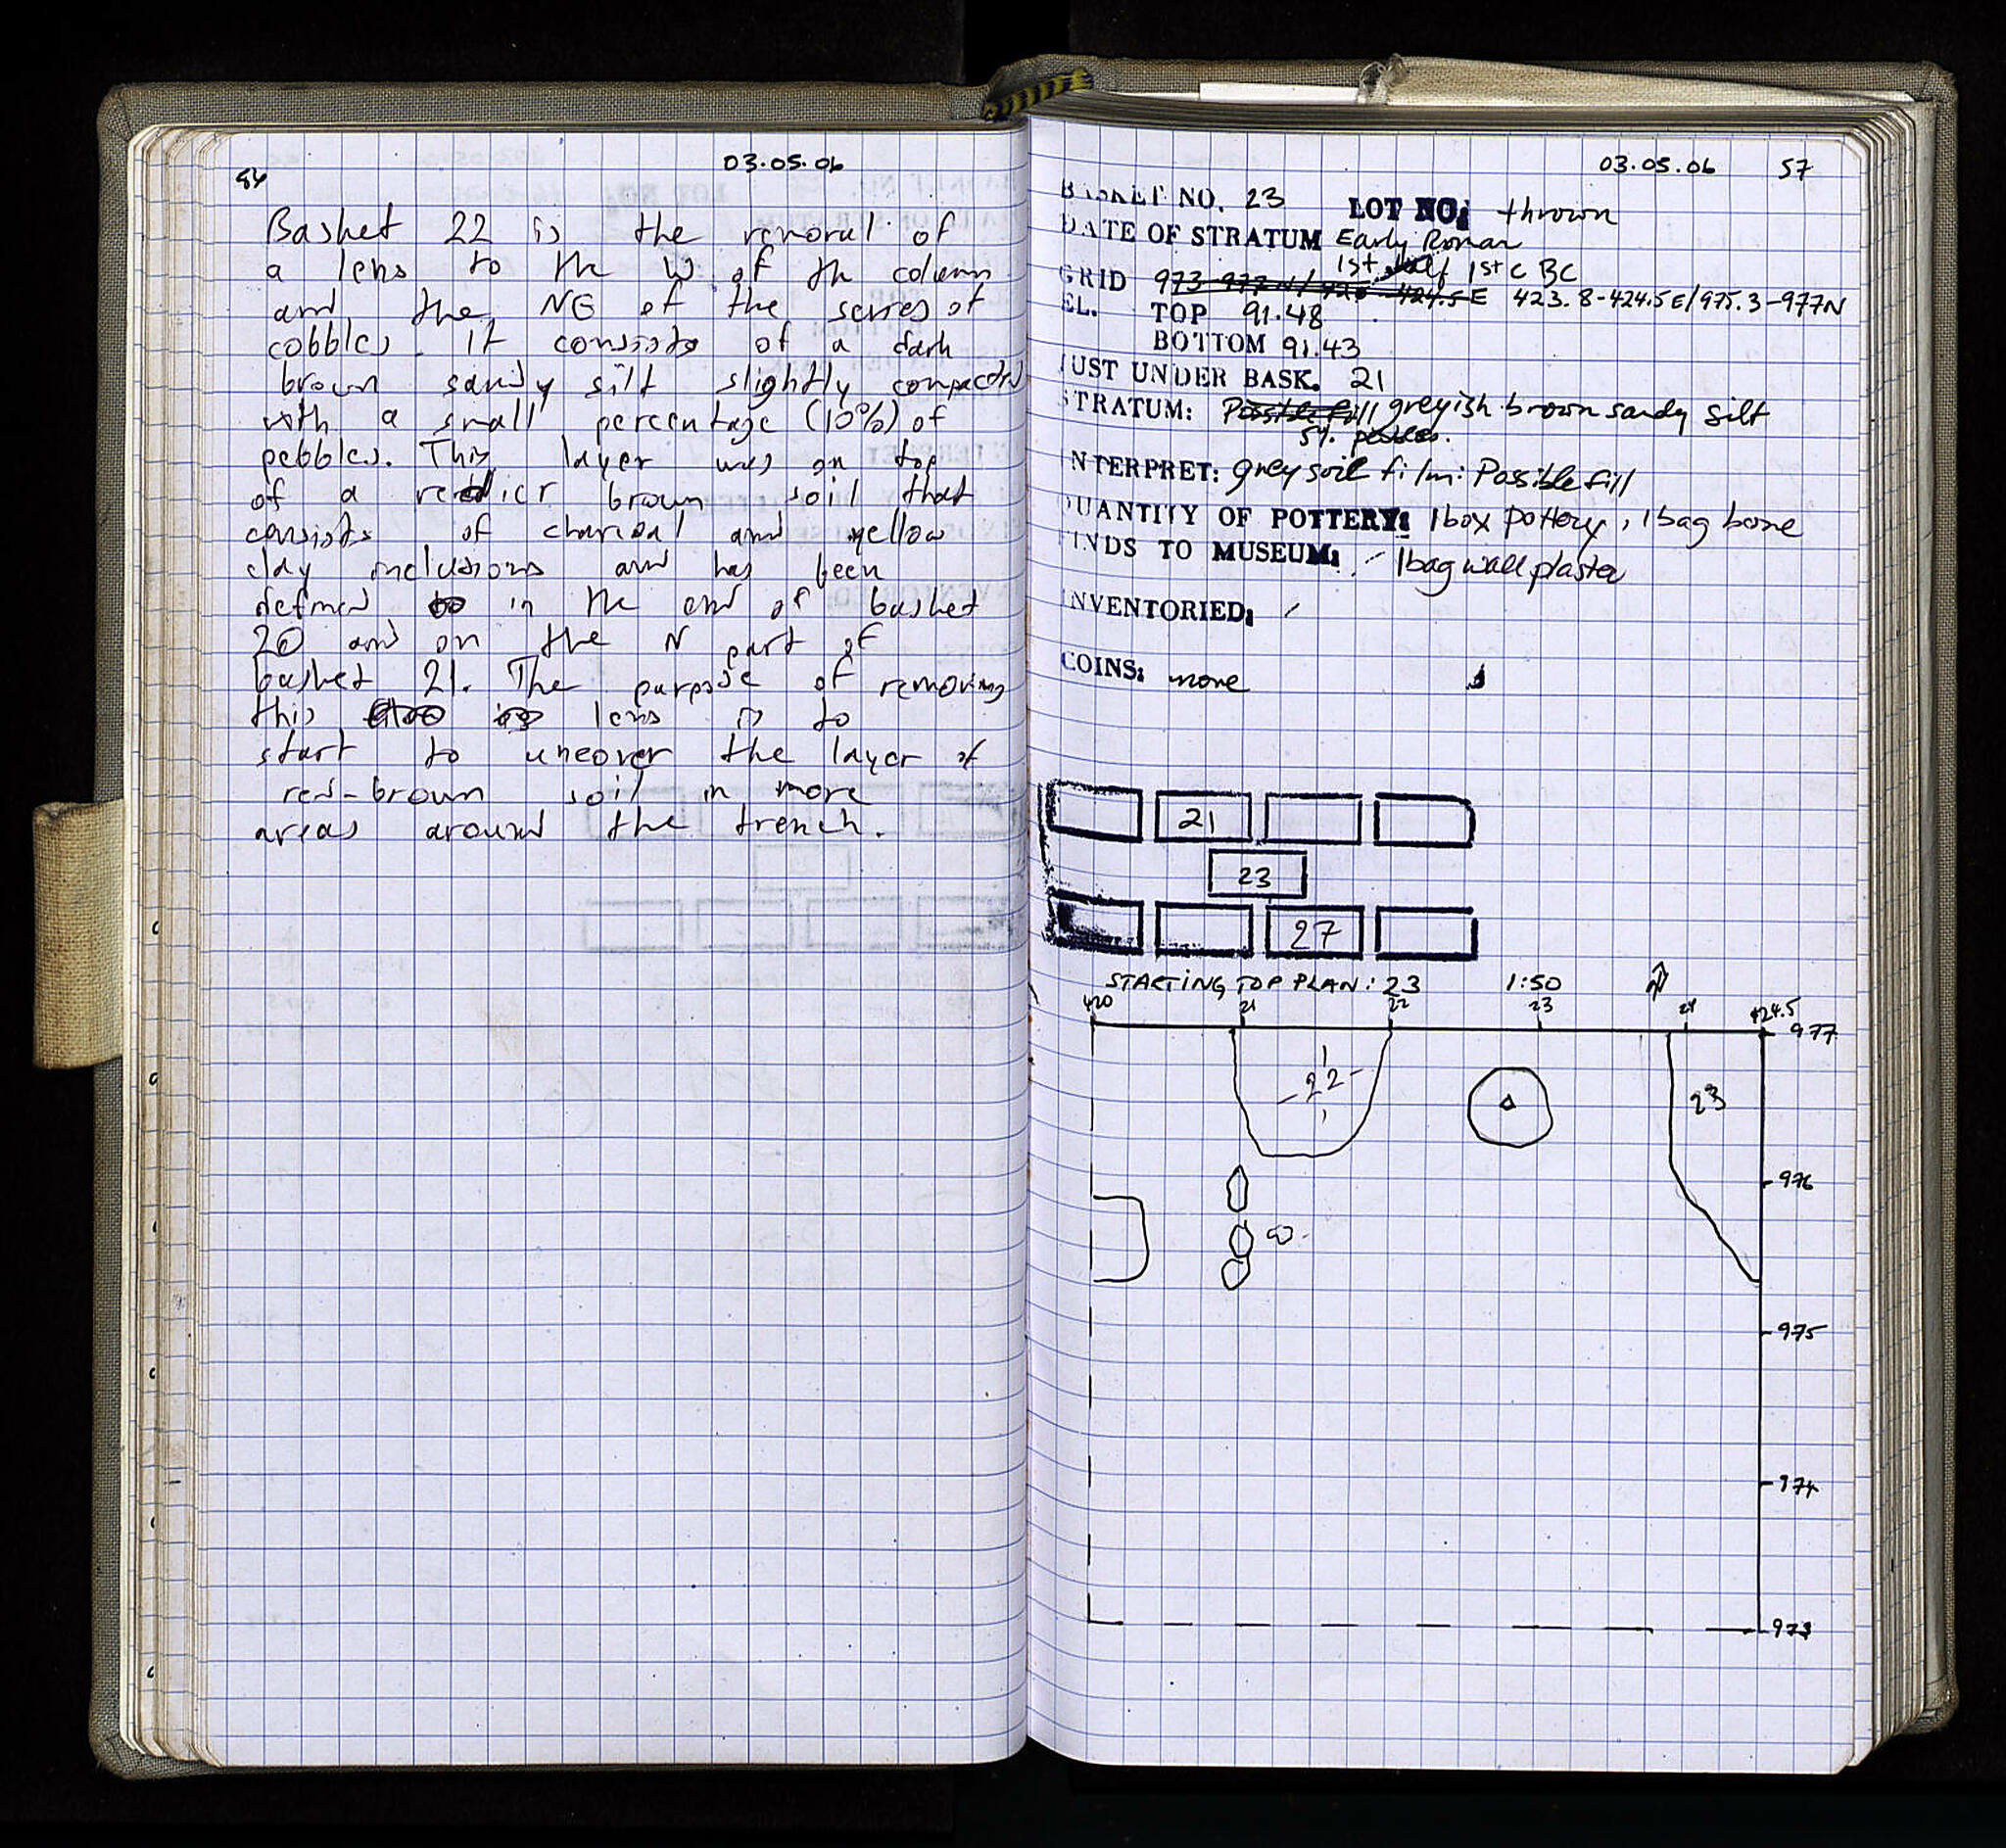 03.05.06
Basket 22 is the removal of
a lens to the W of the column
and the NE of the series of
cobbles. It consists of a dark
brown sandy silt slightly compacted
with a small percentage (10%) of
pebbles. This layer was on top
of a reddier brown soil that
consists of charcoal and yellow
clay inclusions and has been
defined in the end of basket
20 and on the N part of
basket 21. The purpose of removing
this lens is to
start to uncover the layer of
red-brown soil in more
areas around the trench.
03.05.06 57
BASKET NO. 23 LOT NO: thrown
DATE OF STRATUM Early Roman
1st half 1st c BC
GRID 973-977N/423-424.5E 423.8-424.5E/975.3-977N
EL. TOP 91.48
BOTTOM 91.43
JUST UNDER BASK. 21
STRATUM: Possible fill greyish brown sandy silt
5% pebbles.
INTERPRET: grey soil film: Possible fill
QUANTITY OF POTTERY: 1box pottery, 1bag bone
FINDS TO MUSEUM: - 1bag wall plaster
INVENTORIED: /
COINS: none
21
23
27
STARTING TOP PLAN: 23 1:50
420 21 22 23 24 424.5
977
22
23
976
975
974
973